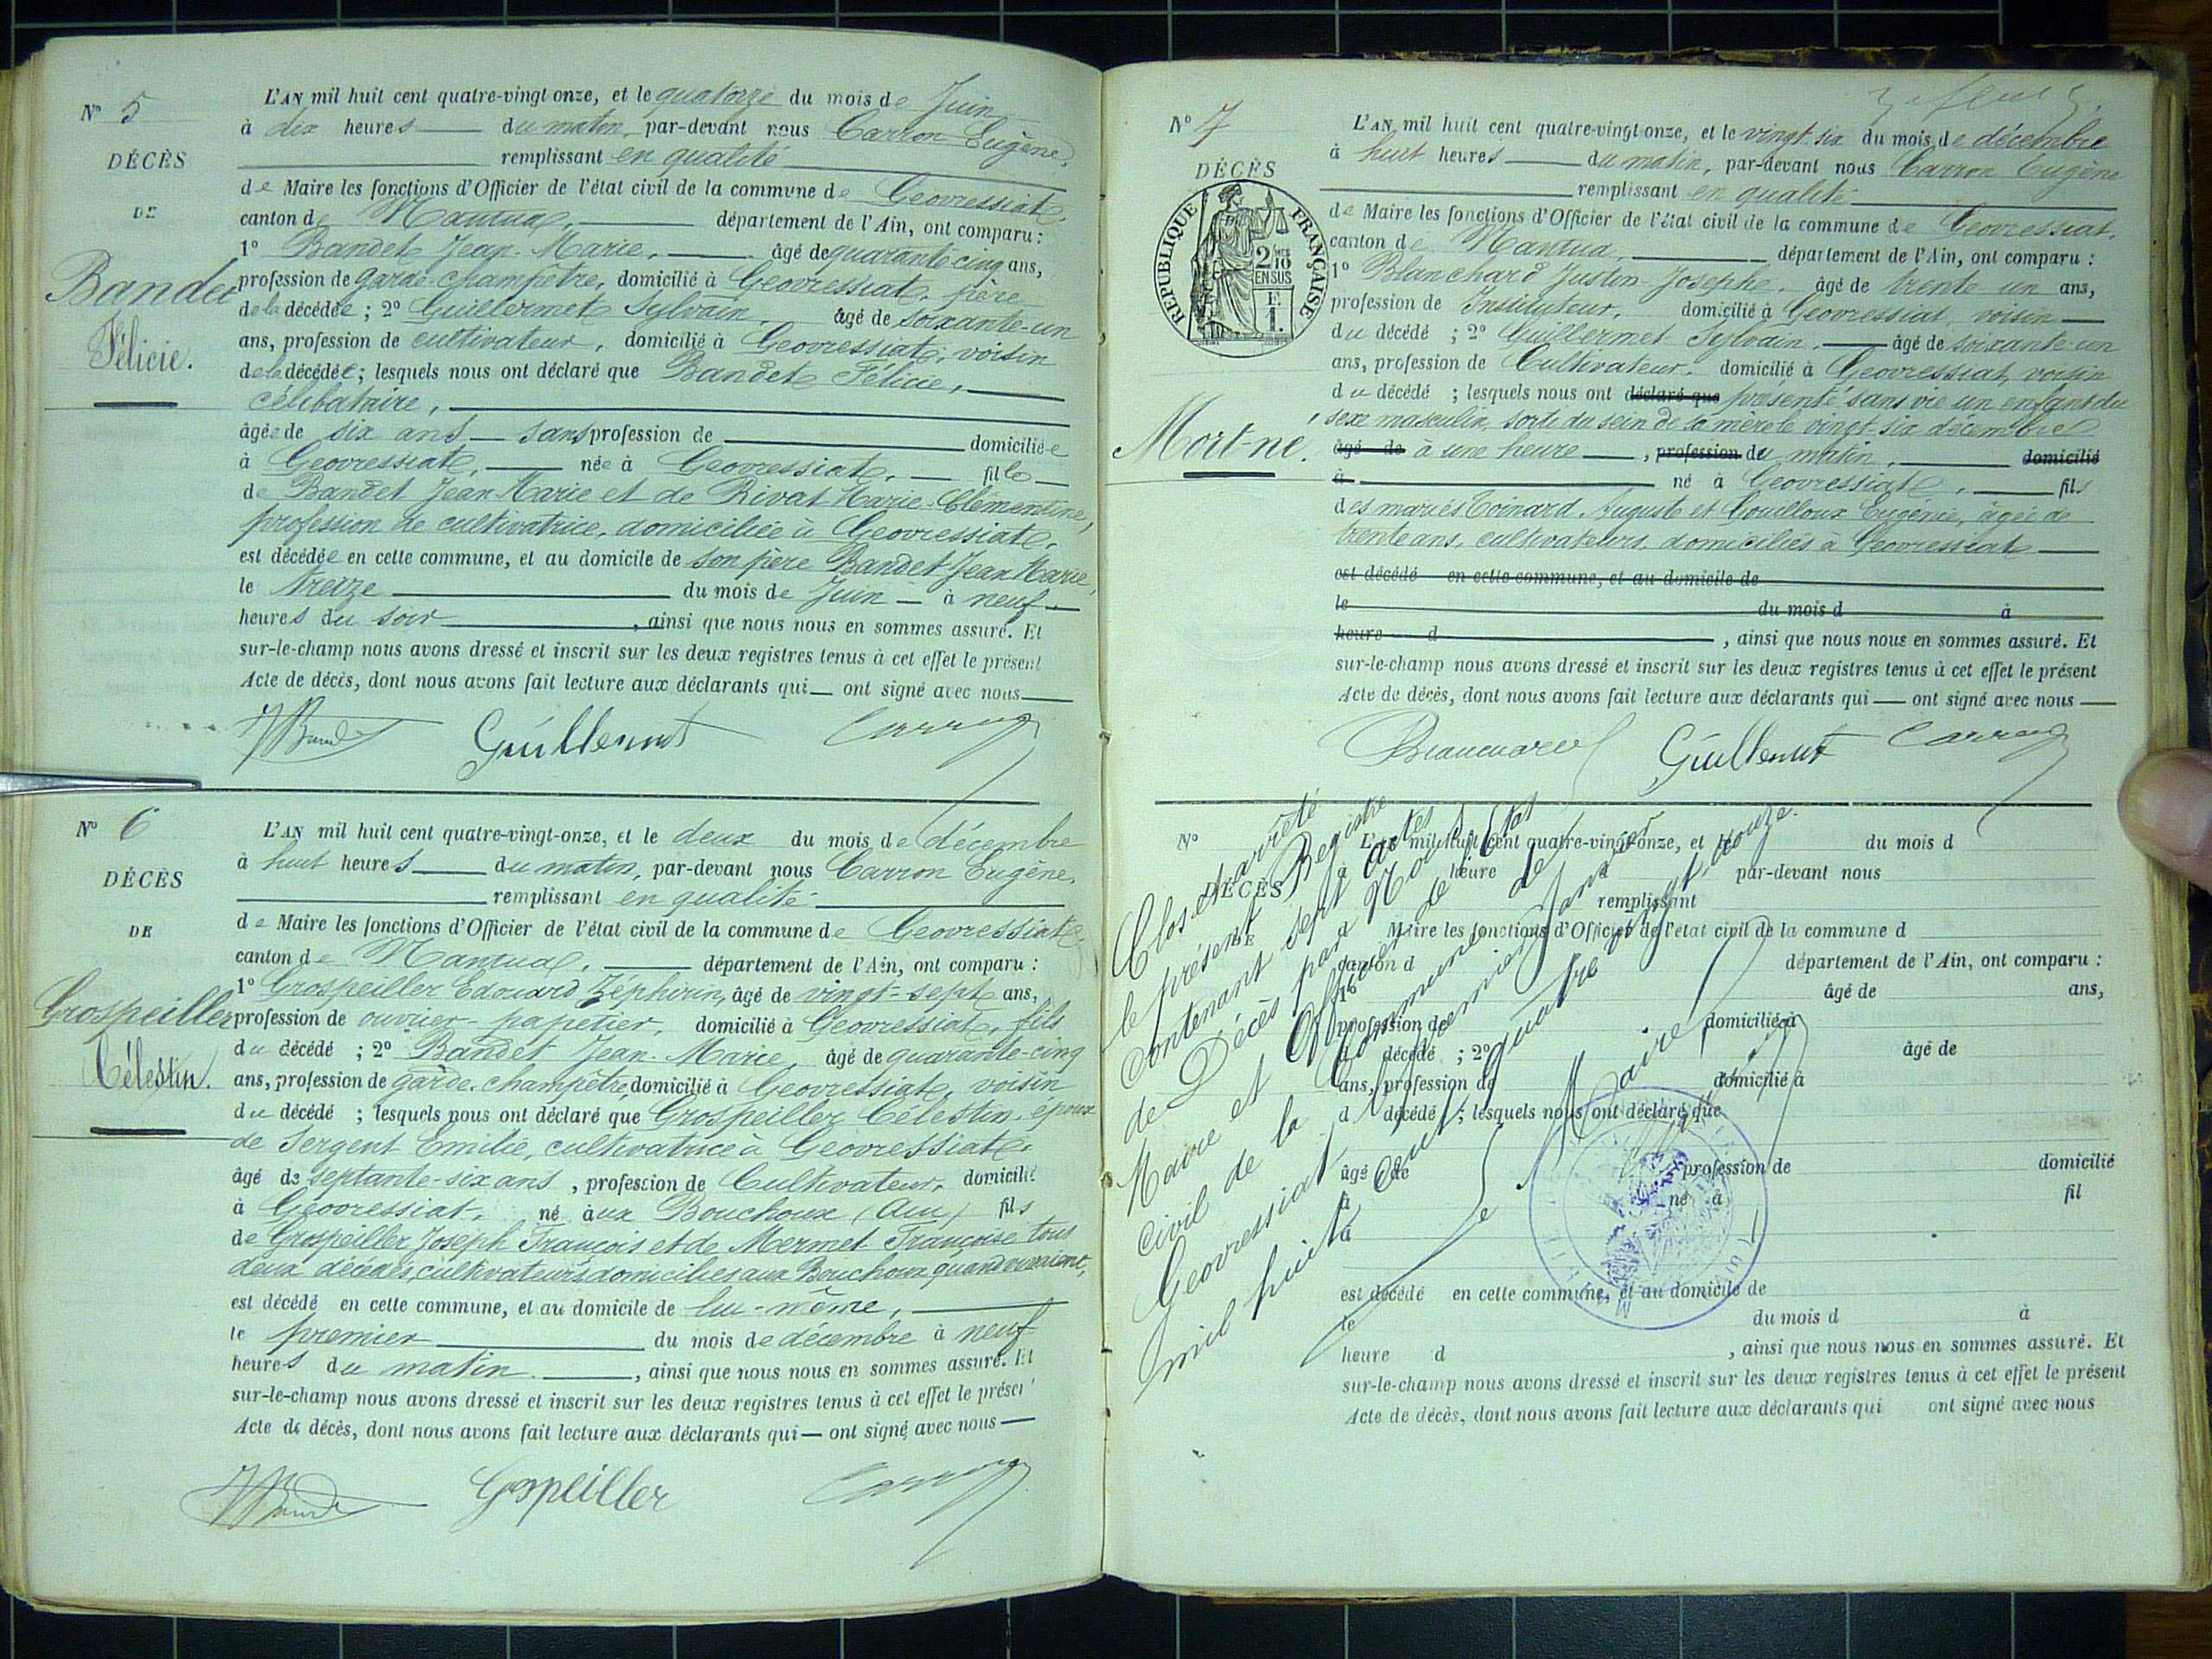 N° 5
DÉCÈS
DE
Bandet
Félicie.
L'AN mil huit cent quatre-vingt onze, et le quatorze du mois de Juin
à dix heures du matin, par-devant nous Carron Eugène,
remplissant en qualité
de Maire les fonctions d'Officier de l'état civil de la commune de Geovressiat,
canton de Nantua, département de l'Ain, ont comparu :
1° Bandet Jean-Marie, âgé de quarante cinq ans,
profession de garde-champêtre, domicilié à Geovressiat, père
de la décédée ; 2° Guillermet Sylvain, âgé de soixante-un
ans, profession de cultivateur, domicilié à Geovressiat, voisin
de la décédée ; lesquels nous ont déclaré que Bandet Félicie,
célibataire,
âgée de six ans sans profession de domiciliée
à Geovressiat, née à Geovressiat, fille
de Bandet Jean Marie et de Rivat Marie-Clémentine,
profession de cultivatrice, domiciliée à Geovressiat,
est décédée en cette commune, et au domicile de son père Bandet Jean Marie,
le treize du mois de Juin à neuf
heures du soir, ainsi que nous nous en sommes assuré. Et
sur-le-champ nous avons dressé et inscrit sur les deux registres tenus à cet effet le présent
Acte de décès, dont nous avons fait lecture aux déclarants qui ont signé avec nous
Guillermet Carron
N° 6
DÉCÈS
DE
Grospeiller
Célestin.
L'AN mil huit cent quatre-vingt-onze, et le deux du mois de décembre
à huit heures du matin, par-devant nous Carron Eugène,
remplissant en qualité
de Maire les fonctions d'Officier de l'état civil de la commune de Geovressiat,
canton de Nantua, département de l'Ain, ont comparu :
1° Grospeiller Edouard Zéphirin, âgé de vingt-sept ans,
profession de ouvrier-papetier, domicilié à Geovressiat, fils
du décédé ; 2° Bandet Jean-Marie, âgé de quarante-cinq
ans, profession de garde-champêtre, domicilié à Geovressiat, voisin
du décédé ; lesquels nous ont déclaré que Grospeiller Célestin, époux
de Sergent Emilie, cultivatrice à Geovressiat,
âgé de septante-six ans, profession de Cultivateur, domicilié
à Geovressiat, né aux Bouchoux (Ain) fils
de Grospeiller Joseph François et de Mermet Françoise tous
deux décédés, cultivateurs domiciliés aux Bouchoux quand vivaient,
est décédé en cette commune, et au domicile de lui-même,
le premier du mois de décembre à neuf
heures du matin, ainsi que nous nous en sommes assuré. Et
sur-le-champ nous avons dressé et inscrit sur les deux registres tenus à cet effet le présent
Acte de décès, dont nous avons fait lecture aux déclarants qui ont signé avec nous
Gospeiller Carron
N° 7
DÉCÈS
RÉPUBLIQUE FRANÇAISE
2/10 EN SUS
Mort-né.
L'AN mil huit cent quatre-vingt onze, et le vingt-six du mois de décembre
à huit heures du matin, par-devant nous Carron Eugène
remplissant en qualité
de Maire les fonctions d'Officier de l'état civil de la commune de Geovressiat,
canton de Nantua, département de l'Ain, ont comparu :
1° Blanchard Justin Josephe, âgé de trente un ans,
profession de Instituteur, domicilié à Geovressiat voisin
du décédé ; 2° Guillermet Sylvain, âgé de soixante-un
ans, profession de Cultivateur, domicilié à Geovressiat, voisin
du décédé ; lesquels nous ont déclaré que présenté sans vie un enfant du
sexe masculin, sorti du sein de sa mère le vingt-six décembre
âgé de à une heure, profession du matin, domicilié
à né à Geovressiat, fils
des mariés Coinard Auguste et Gouilloux Eugénie, âgée de
trente ans, cultivateurs, domiciliés à Geovressiat
est décédé en cette commune, et au domicile de
le du mois d à
heure d, ainsi que nous nous en sommes assuré. Et
sur-le-champ nous avons dressé et inscrit sur les deux registres tenus à cet effet le présent
Acte de décès, dont nous avons fait lecture aux déclarants qui ont signé avec nous
Blanchard Guillermet Carron
N°
DÉCÈS
DE
L'AN mil huit cent quatre-vingt-onze, et le du mois d
heure par-devant nous
remplissant
Maire les fonctions d'Officier de l'état civil de la commune d
canton d département de l'Ain, ont comparu :
1° âgé de ans,
profession de domicilié à
d décédé ; 2° âgé de
ans, profession de domicilié à
d décédé ; lesquels nous ont déclaré que
âgé de profession de domicilié
à né à fil
d
est décédé en cette commune, et au domicile de
le du mois d à
heure d, ainsi que nous nous en sommes assuré. Et
sur-le-champ nous avons dressé et inscrit sur les deux registres tenus à cet effet le présent
Acte de décès, dont nous avons fait lecture aux déclarants qui ont signé avec nous
Clos et arrêté
le présent Registre
contenant sept actes
de Décès par Nous
Maire et Officier de l'État
civil de la Commune de
Geovressiat le premier Janvier
mil huit cent quatre vingt-douze.
Le Maire